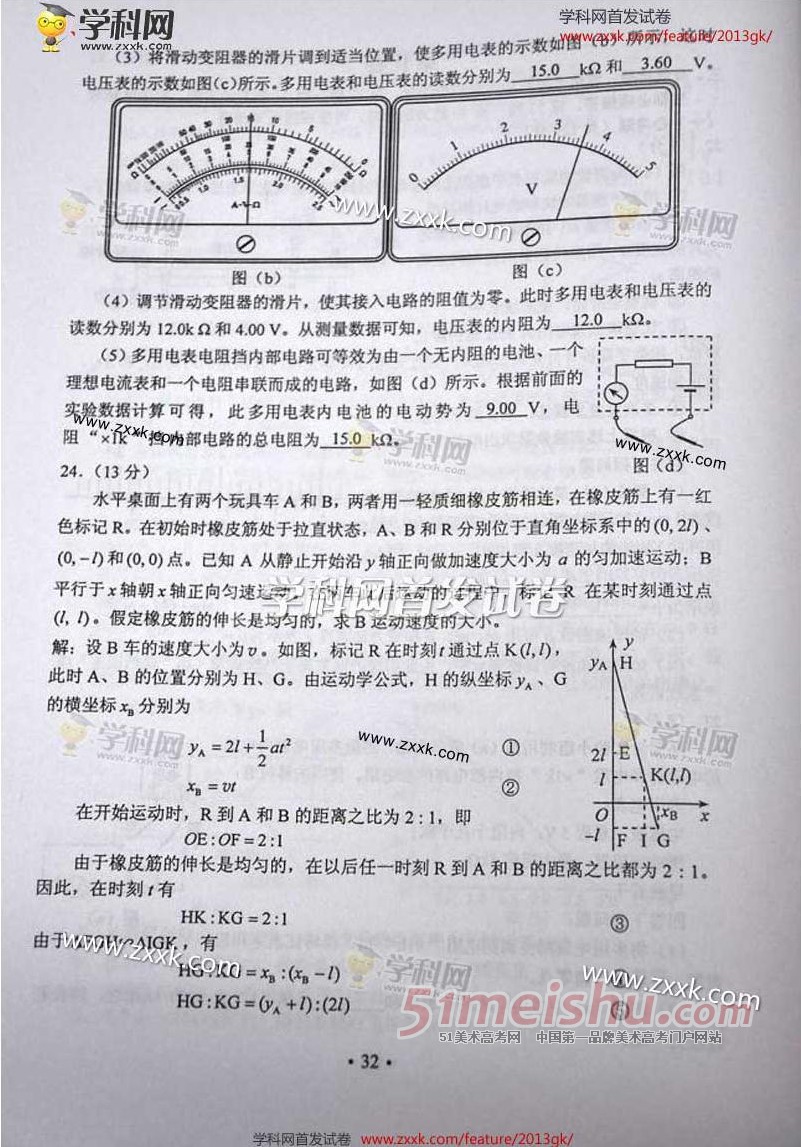 学科网首发试卷
www.zxxk.com/feature/2013gk/
学科网
www.zxxk.com
(3)将滑动变阻器的滑片调到适当位置,使多用电表的示数如图(b)所示,这时
电压表的示数如图(c)所示。多用电表和电压表的读数分别为 15.0 kΩ和 3.60 V。
0 1 2 3 4 5
V
A-V-Ω
www.zxxk.com
图(b)
图(c)
(4)调节滑动变阻器的滑片,使其接入电路的阻值为零。此时多用电表和电压表的
读数分别为12.0k Ω和4.00 V。从测量数据可知,电压表的内阻为 12.0 kΩ。
(5)多用电表电阻挡内部电路可等效为由一个无内阻的电池、一个
理想电流表和一个电阻串联而成的电路,如图(d)所示。根据前面的
实验数据计算可得,此多用电表内电池的电动势为 9.00 V,电
阻“×1k”挡内部电路的总电阻为 15.0 kΩ。
图(d)
www.zxxk.com
www.zxxk.com
24.(13分)
水平桌面上有两个玩具车A和B,两者用一轻质细橡皮筋相连,在橡皮筋上有一红
色标记R。在初始时橡皮筋处于拉直状态,A、B和R分别位于直角坐标系中的(0, 2l)、
(0, -l)和(0, 0)点。已知A从静止开始沿y轴正向做加速度大小为a的匀加速运动;B
平行于x轴朝x轴正向匀速运动。在两车此后运动的过程中,标记R在某时刻通过点
(l, l)。假定橡皮筋的伸长是均匀的,求B运动速度的大小。
学科网首发试卷
解:设B车的速度大小为v。如图,标记R在时刻t通过点K(l, l),
此时A、B的位置分别为H、G。由运动学公式,H的纵坐标y_A、G
的横坐标x_B分别为
y_A = 2l + 1/2 at² ①
x_B = vt ②
y
y_A H
2l E
l K(l,l)
O x_B x
-l F I G
www.zxxk.com
在开始运动时,R到A和B的距离之比为2:1,即
OE:OF=2:1
由于橡皮筋的伸长是均匀的,在以后任一时刻R到A和B的距离之比都为2:1。
因此,在时刻t有
HK:KG=2:1 ③
由于△FGH∽△IGK,有
HG:KG=x_B:(x_B-l)
HG:KG=(y_A+l):(2l) ⑤
www.zxxk.com
www.zxxk.com
51meishu.com
51美术高考网 中国第一品牌美术高考门户网站
·32·
学科网首发试卷 www.zxxk.com/feature/2013gk/